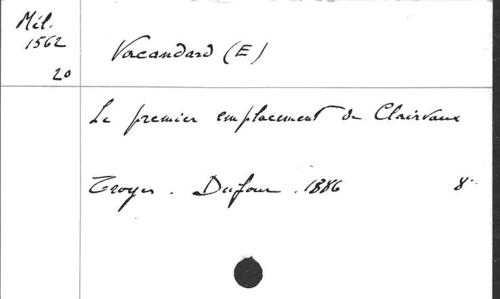 Mél.
1562
20
Vacandard (E)
Le premier emplacement de Clairvaux
Troyes. Dufour. 1886 8°